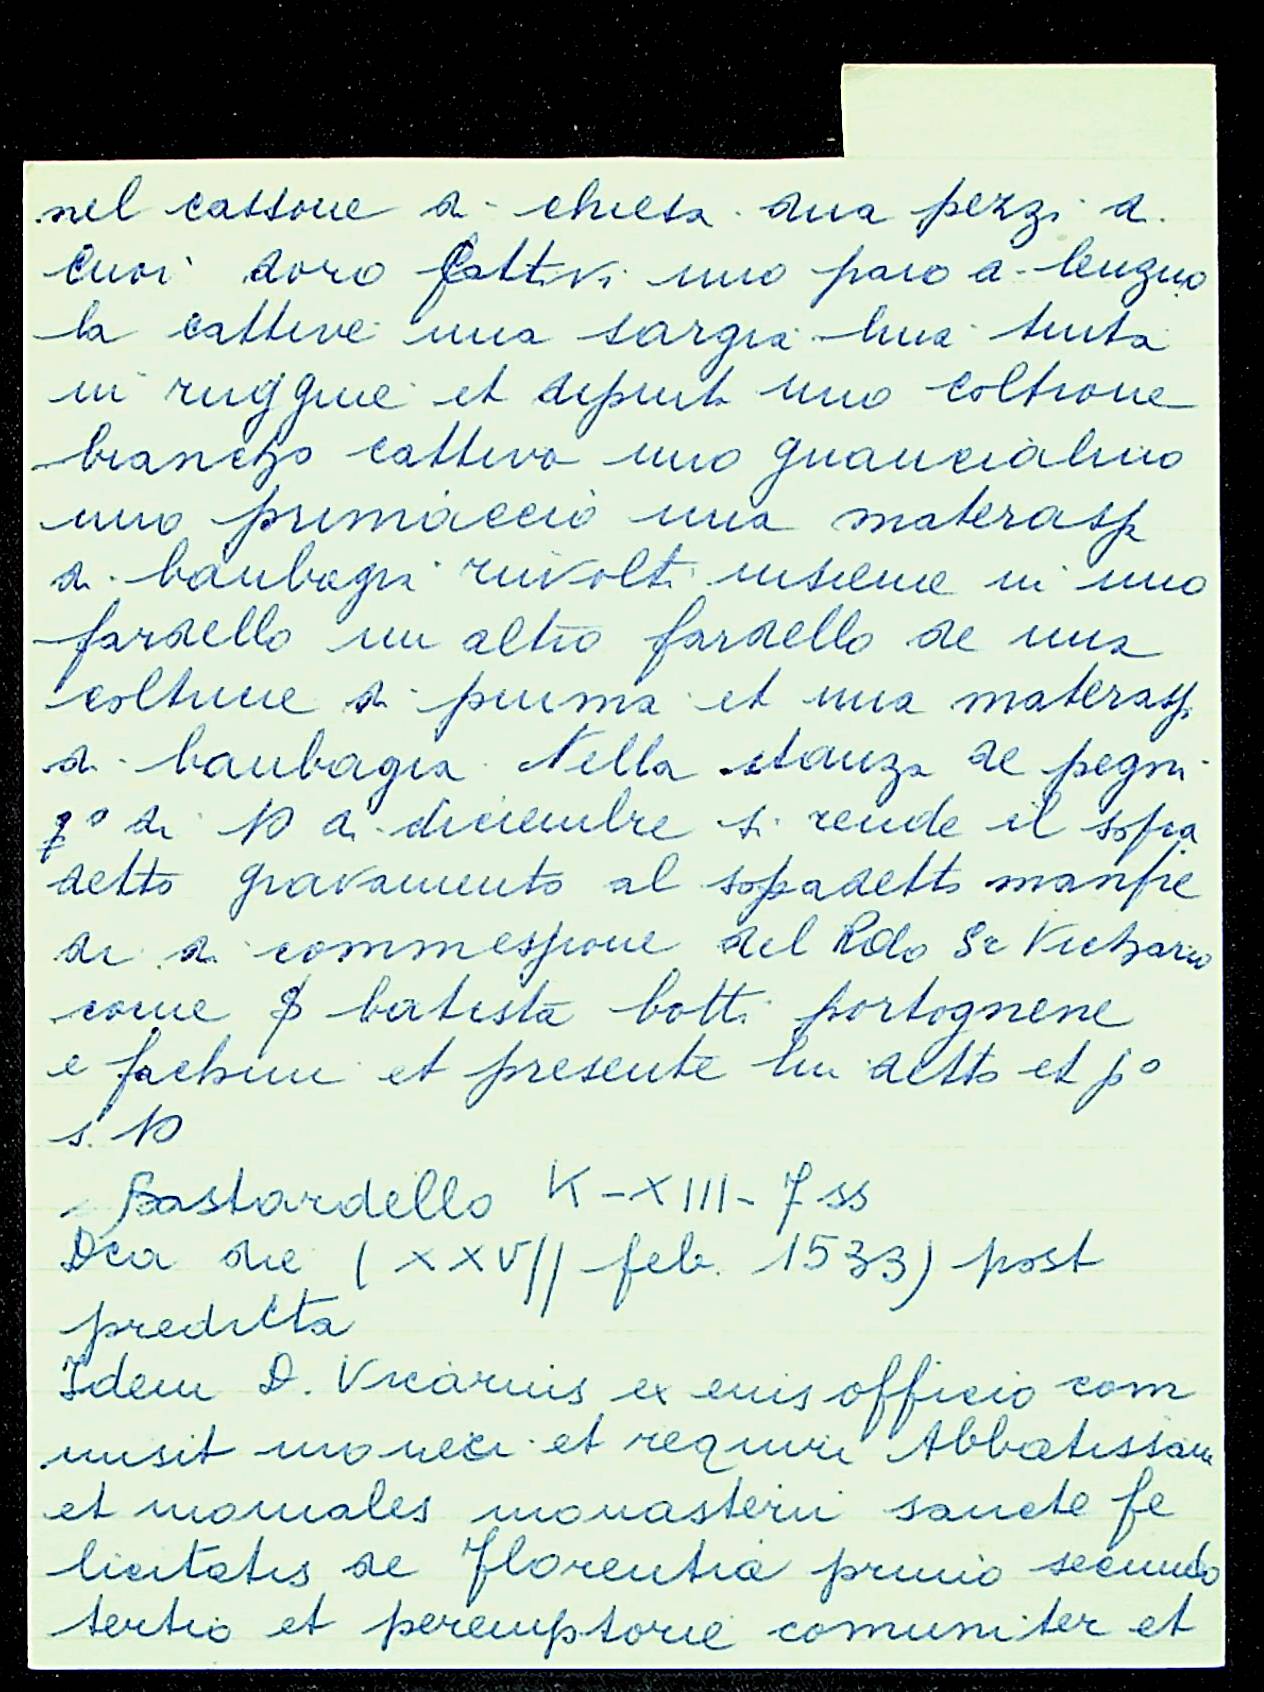 nel cassone di chiesa dua pezzi di
cuoi doro cattivi uno paio di lenzuo
la cattive una sargia lina tinta
in ruggine et dipinta uno coltrone
biancho cattivo uno guancialino
uno primaccio una materassa
di banbagia rinvolti insieme in uno
fardello un altro fardello de una
coltrice di piuma et una materassa
di banbagia. Nella stanza de pegni
di 10 di diciembre si rende il sopra
detto gravamento al sopradetto manfre
di di commessione del Rdo Sr Vichario
come batista botti portognene
e fachini et presente lui detto et po
s. 10
Bastardello K-XIII-7 ss
Dca die (XXVII feb. 1533) post
predicta
Idem D. Vicarius ex eius officio com
misit moneri et requiri Abbatissam
et moniales monasterii sancte fe
licitatis de Florentia primo secundo
tertio et peremptorie comuniter et